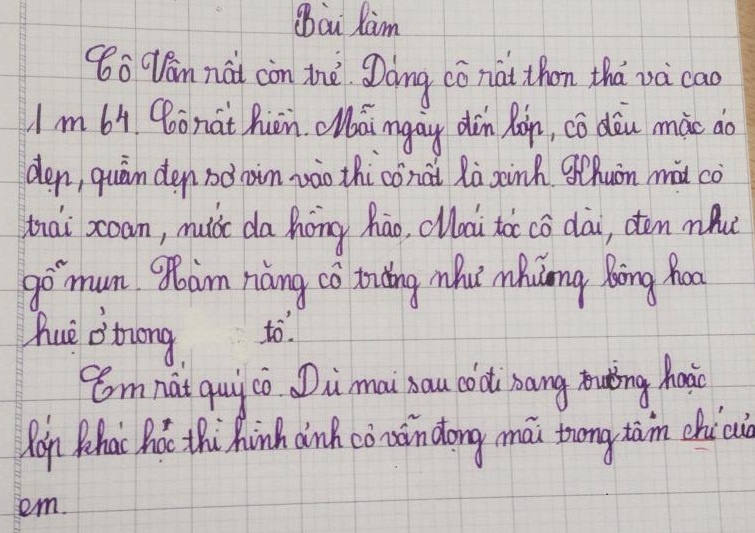 Bài làm
Cô Vân rất còn trẻ. Dáng cô rất thon thả và cao
1 m 64. Cô rất hiền. Mỗi ngày đến lớp, cô đều mặc áo
đẹp, quần đẹp sơ vin vào thì cô rất là xinh. Khuôn mặt cô
trái xoan, nước da hồng hào. Mái tóc cô dài, đen như
gỗ mun. Hàm răng cô trắng như những bông hoa
huệ ở trong tổ.
Em rất quý cô. Dù mai sau có đi sang trường hoặc
lớp khác học thì hình ảnh cô vẫn đọng mãi trong tâm chí của
em.